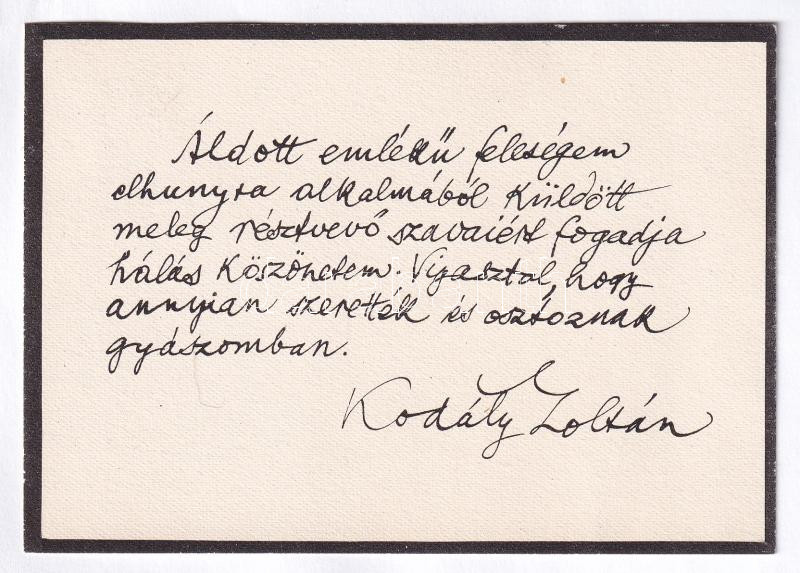 Áldott emlékű feleségem
elhunyta alkalmából küldött
meleg résztvevő szavaiért fogadja
hálás köszönetem. Vigasztal, hogy
annyian szerették és osztoznak
gyászomban.
Kodály Zoltán